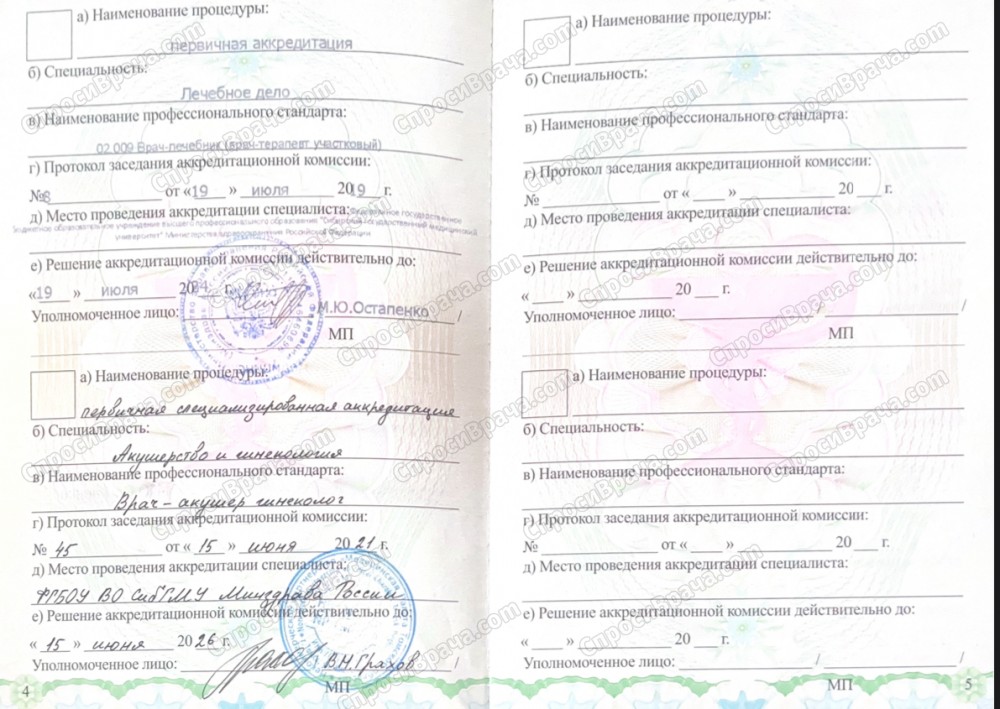 а) Наименование процедуры:
первичная аккредитация
б) Специальность:
Лечебное дело
в) Наименование профессионального стандарта:
02.009 Врач-лечебник (врач-терапевт участковый)
г) Протокол заседания аккредитационной комиссии:
№8 от «19» июля 2019 г.
д) Место проведения аккредитации специалиста: Федеральное государственное
бюджетное образовательное учреждение высшего профессионального образования "Сибирский государственный медицинский
университет" Министерства здравоохранения Российской Федерации
е) Решение аккредитационной комиссии действительно до:
«19» июля 2024 г.
Уполномоченное лицо: М.Ю.Остапенко /
МП
а) Наименование процедуры:
первичная специализированная аккредитация
б) Специальность:
Акушерство и гинекология
в) Наименование профессионального стандарта:
Врач-акушер гинеколог
г) Протокол заседания аккредитационной комиссии:
№ 45 от «15» июня 2021 г.
д) Место проведения аккредитации специалиста:
ФГБОУ ВО СибГМУ Минздрава России
е) Решение аккредитационной комиссии действительно до:
«15» июня 2026 г.
Уполномоченное лицо: / В.Н.Грахов /
МП
4
а) Наименование процедуры:
б) Специальность:
в) Наименование профессионального стандарта:
г) Протокол заседания аккредитационной комиссии:
№ от « » 20 г.
д) Место проведения аккредитации специалиста:
е) Решение аккредитационной комиссии действительно до:
« » 20 г.
Уполномоченное лицо: / /
МП
а) Наименование процедуры:
б) Специальность:
в) Наименование профессионального стандарта:
г) Протокол заседания аккредитационной комиссии:
№ от « » 20 г.
д) Место проведения аккредитации специалиста:
е) Решение аккредитационной комиссии действительно до:
« » 20 г.
Уполномоченное лицо: / /
МП
5
СпросиВрача.com